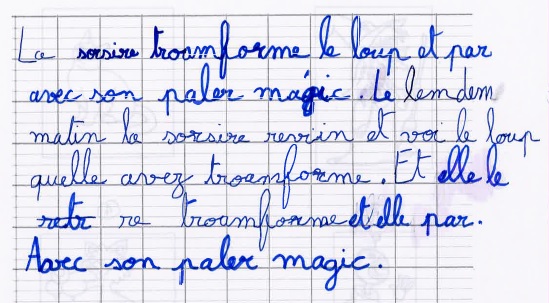 La sorsire troamforme le loup et par
avec son paler magic. Le lemdem
matin la sorsire revvin et voi le loup
quelle avez troamforme. Et elle le
retr re troamforme et elle par.
Aavec son paler magic.